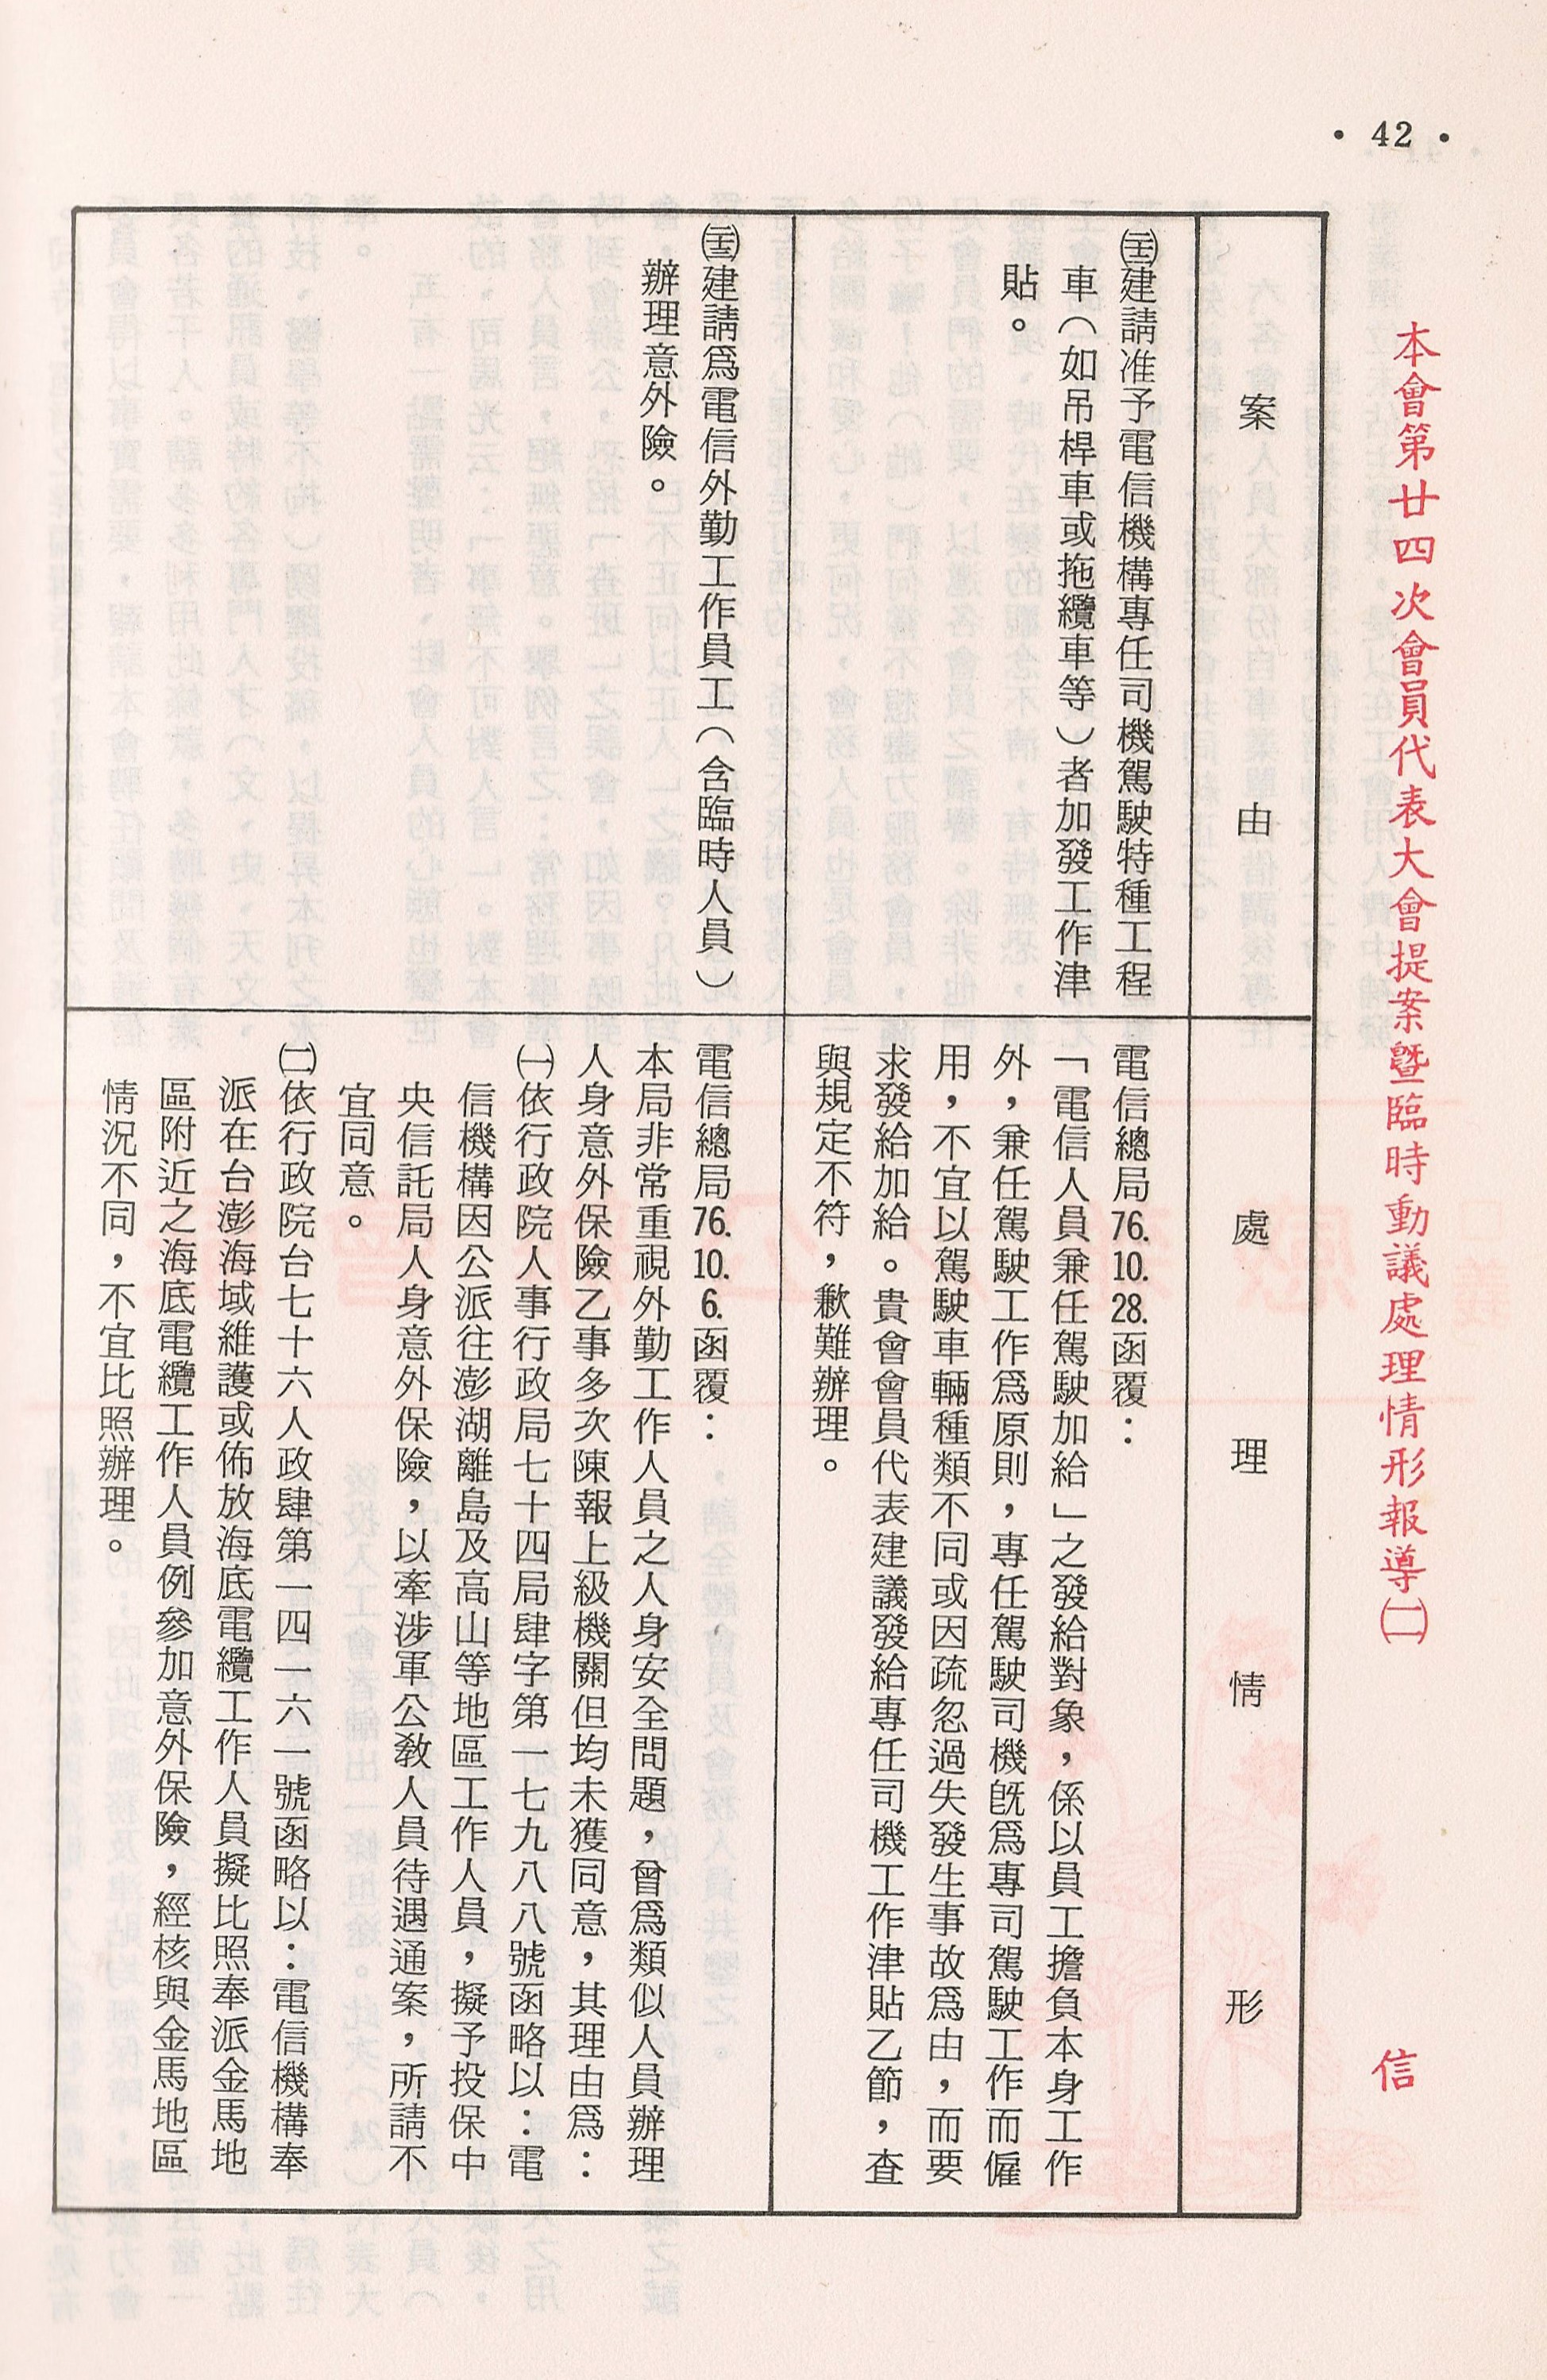 • 42 •
本會第廿四次會員代表大會提案暨臨時動議處理情形報導㈡
信
案由
處理情形
建請准予電信機構專任司機駕駛特種工程
車（如吊桿車或拖纜車等）者加發工作津
貼。
電信總局76.10.28.函覆：
「電信人員兼任駕駛加給」之發給對象，係以員工擔負本身工作
外，兼任駕駛工作爲原則，專任駕駛司機旣爲專司駕駛工作而僱
用，不宜以駕駛車輛種類不同或因疏忽過失發生事故爲由，而要
求發給加給。貴會會員代表建議發給專任司機工作津貼乙節，查
與規定不符，歉難辦理。
建請爲電信外勤工作員工（含臨時人員）
辦理意外險。
電信總局76.10.6.函覆：
本局非常重視外勤工作人員之人身安全問題，曾爲類似人員辦理
人身意外保險乙事多次陳報上級機關但均未獲同意，其理由爲：
㈠依行政院人事行政局七十四局肆字第一七九八八號函略以：電
信機構因公派往澎湖離島及高山等地區工作人員，擬予投保中
央信託局人身意外保險，以牽涉軍公敎人員待遇通案，所請不
宜同意。
㈡依行政院台七十六人政肆第一四一六一號函略以：電信機構奉
派在台澎海域維護或佈放海底電纜工作人員擬比照奉派金馬地
區附近之海底電纜工作人員例參加意外保險，經核與金馬地區
情況不同，不宜比照辦理。